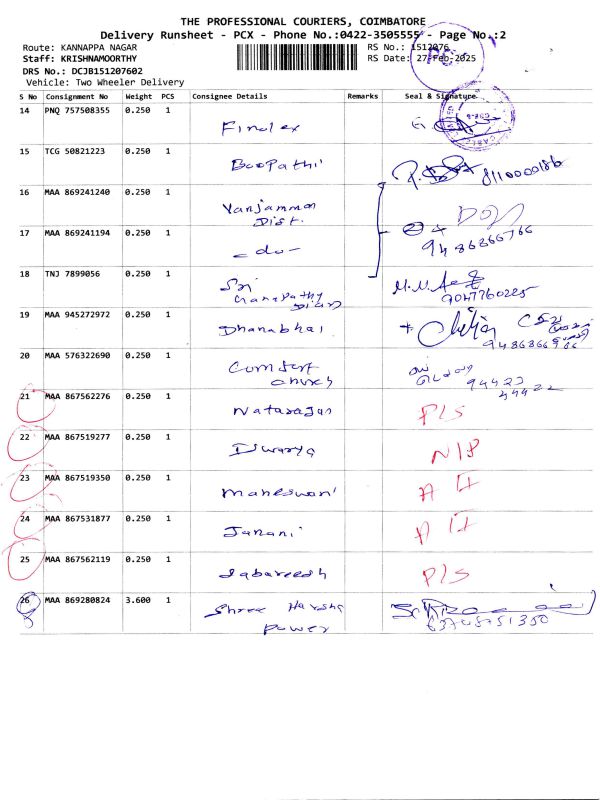 THE PROFESSIONAL COURIERS, COIMBATORE
Delivery Runsheet - PCX - Phone No.:0422-3505555 - Page No.:2
Route: KANNAPPA NAGAR RS No.: 1512076
Staff: KRISHNAMOORTHY RS Date: 27-Feb-2025
DRS No.: DCJB151207602
Vehicle: Two Wheeler Delivery
S No Consignment No Weight PCS Consignee Details Remarks Seal & Signature
14 PNQ 757508355 0.250 1 Finolex
15 TCG 50821223 0.250 1 Boopathi 8110000186
16 MAA 869241240 0.250 1 Vanjamman
Dist.
17 MAA 869241194 0.250 1 - do - 9486866766
18 TNJ 7899056 0.250 1 Sri
Ganapathy
9047760225
19 MAA 945272972 0.250 1 Dhanabhai
20 MAA 576322690 0.250 1 Comfort
church 94423
44422
21 MAA 867562276 0.250 1 Natarajan P/S
22 MAA 867519277 0.250 1 Iswarya N/P
23 MAA 867519350 0.250 1 Maheswari
24 MAA 867531877 0.250 1 Janani
25 MAA 867562119 0.250 1 Sabareesh P/S
26 MAA 869280824 3.600 1 Shree Harsha
Power 6374575 1350